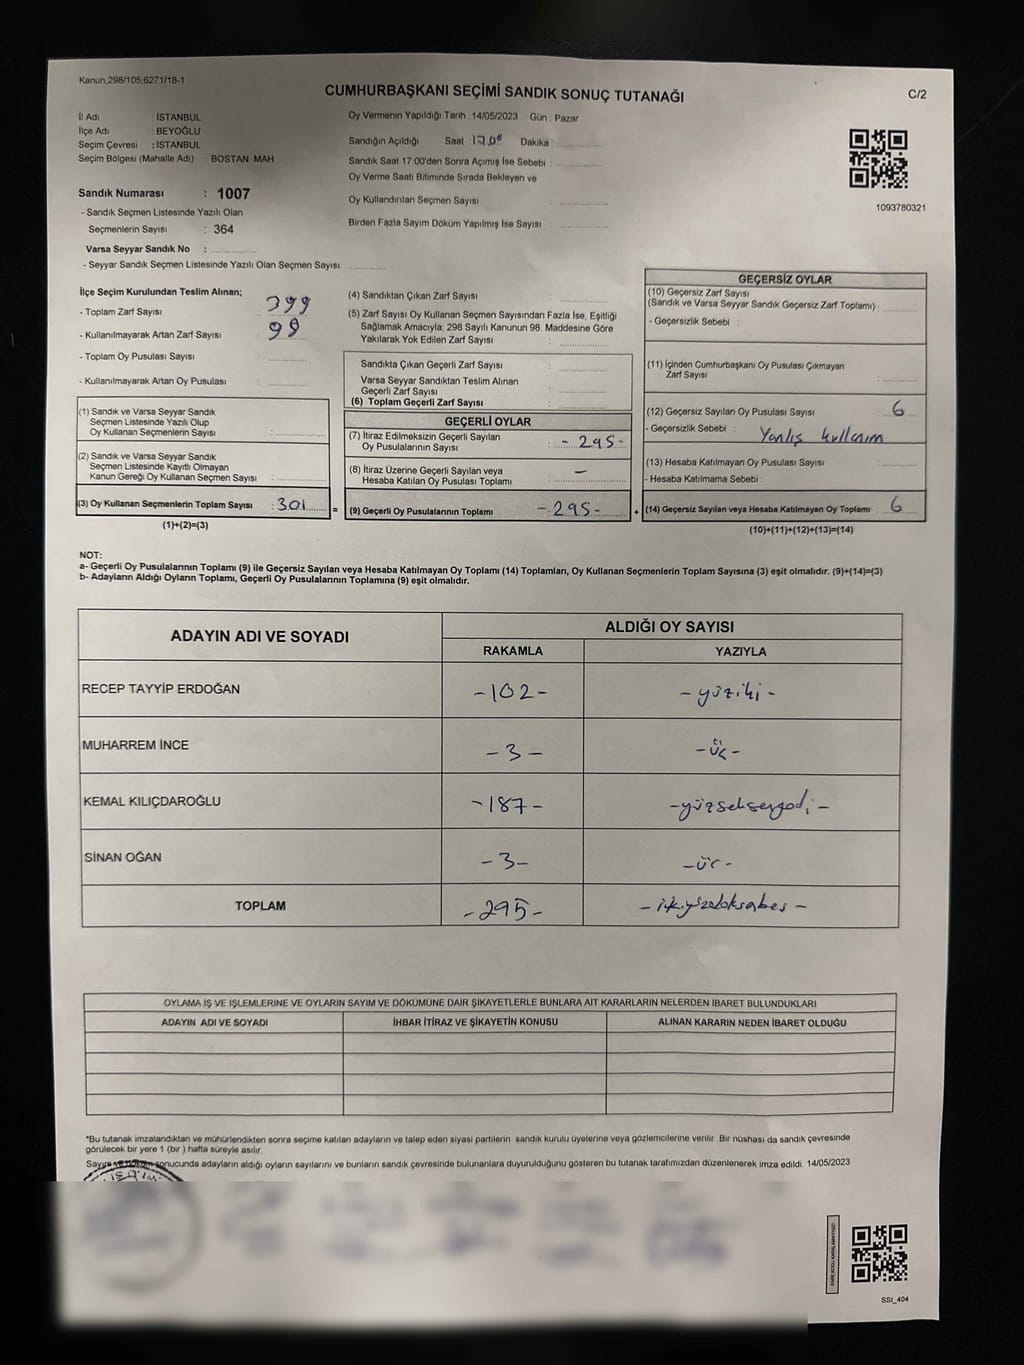 Kanun,298/105,6271/18-1
CUMHURBAŞKANI SEÇİMİ SANDIK SONUÇ TUTANAĞI
C/2
İl Adı : İSTANBUL
İlçe Adı : BEYOĞLU
Seçim Çevresi : İSTANBUL
Seçim Bölgesi (Mahalle Adı) : BOSTAN MAH
Sandık Numarası : 1007
- Sandık Seçmen Listesinde Yazılı Olan
Seçmenlerin Sayısı : 364
Varsa Seyyar Sandık No :
- Seyyar Sandık Seçmen Listesinde Yazılı Olan Seçmen Sayısı:
Oy Vermenin Yapıldığı Tarih :14/05/2023 Gün : Pazar
Sandığın Açıldığı Saat :17.00 Dakika :
Sandık Saat 17:00'den Sonra Açımış İse Sebebi :
Oy Verme Saati Bitiminde Sırada Bekleyen ve
Oy Kullandırılan Seçmen Sayısı :
Birden Fazla Sayım Döküm Yapılmış İse Sayısı :
1093780321
İlçe Seçim Kurulundan Teslim Alınan;
- Toplam Zarf Sayısı : 399
- Kullanılmayarak Artan Zarf Sayısı : 98
- Toplam Oy Pusulası Sayısı :
- Kullanılmayarak Artan Oy Pusulası :
(1) Sandık ve Varsa Seyyar Sandık
Seçmen Listesinde Yazılı Olup
Oy Kullanan Seçmenlerin Sayısı :
(2) Sandık ve Varsa Seyyar Sandık
Seçmen Listesinde Kayıtlı Olmayan
Kanun Gereği Oy Kullanan Seçmen Sayısı :
(3) Oy Kullanan Seçmenlerin Toplam Sayısı :301
(1)+(2)=(3)
(4) Sandıktan Çıkan Zarf Sayısı :
(5) Zarf Sayısı Oy Kullanan Seçmen Sayısından Fazla İse, Eşitliği
Sağlamak Amacıyla; 298 Sayılı Kanunun 98. Maddesine Göre
Yakılarak Yok Edilen Zarf Sayısı :
Sandıkta Çıkan Geçerli Zarf Sayısı :
Varsa Seyyar Sandıktan Teslim Alınan
Geçerli Zarf Sayısı :
(6) Toplam Geçerli Zarf Sayısı :
GEÇERLİ OYLAR
(7) İtiraz Edilmeksizin Geçerli Sayılan
Oy Pusulalarının Sayısı : -295-
(8) İtiraz Üzerine Geçerli Sayılan veya
Hesaba Katılan Oy Pusulası Toplamı : -
= (9) Geçerli Oy Pusulalarının Toplamı : -295-
GEÇERSİZ OYLAR
(10) Geçersiz Zarf Sayısı
(Sandık ve Varsa Seyyar Sandık Geçersiz Zarf Toplamı) :
- Geçersizlik Sebebi :
(11) İçinden Cumhurbaşkanı Oy Pusulası Çıkmayan
Zarf Sayısı :
(12) Geçersiz Sayılan Oy Pusulası Sayısı : 6
- Geçersizlik Sebebi : Yanlış kullanım
(13) Hesaba Katılmayan Oy Pusulası Sayısı :
- Hesaba Katılmama Sebebi :
+ (14) Geçersiz Sayılan veya Hesaba Katılmayan Oy Toplamı : 6
(10)+(11)+(12)+(13)=(14)
NOT:
a- Geçerli Oy Pusulalarının Toplamı (9) ile Geçersiz Sayılan veya Hesaba Katılmayan Oy Toplamı (14) Toplamları, Oy Kullanan Seçmenlerin Toplam Sayısına (3) eşit olmalıdır. (9)+(14)=(3)
b- Adayların Aldığı Oyların Toplamı, Geçerli Oy Pusulalarının Toplamına (9) eşit olmalıdır.
ADAYIN ADI VE SOYADI
ALDIĞI OY SAYISI
RAKAMLA YAZIYLA
RECEP TAYYİP ERDOĞAN -102- -yüziki-
MUHARREM İNCE -3- -üç-
KEMAL KILIÇDAROĞLU -187- -yüzseksenyedi-
SİNAN OĞAN -3- -üç-
TOPLAM -295- -ikiyüzdoksanbeş-
OYLAMA İŞ VE İŞLEMLERİNE VE OYLARIN SAYIM VE DÖKÜMÜNE DAİR ŞİKAYETLERLE BUNLARA AİT KARARLARIN NELERDEN İBARET BULUNDUKLARI
ADAYIN ADI VE SOYADI İHBAR İTİRAZ VE ŞİKAYETİN KONUSU ALINAN KARARIN NEDEN İBARET OLDUĞU
*Bu tutanak imzalandıktan ve mühürlendikten sonra seçime katılan adayların ve talep eden siyasi partilerin sandık kurulu üyelerine veya gözlemcilerine verilir. Bir nüshası da sandık çevresinde
görülecek bir yere 1 (bir ) hafta süreyle asılır.
Sayım ve döküm sonucunda adayların aldığı oyların sayılarını ve bunların sandık çevresinde bulunanlara duyurulduğunu gösteren bu tutanak tarafımızdan düzenlenerek imza edildi. 14/05/2023
SSI_404